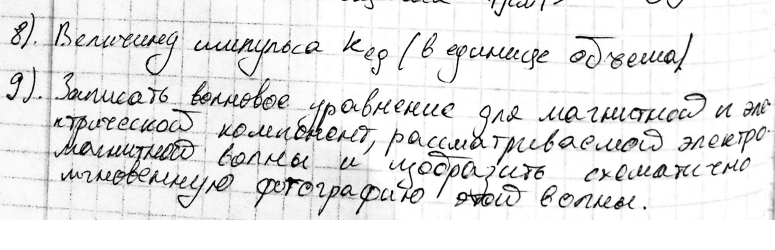 8). Величину импульса Kед (в единице объема)
9). Записать волновое уравнение для магнитной и эле-
ктрической компонент, рассматриваемой электро-
магнитной волны и изобразить схематично
мгновенную фотографию этой волны.